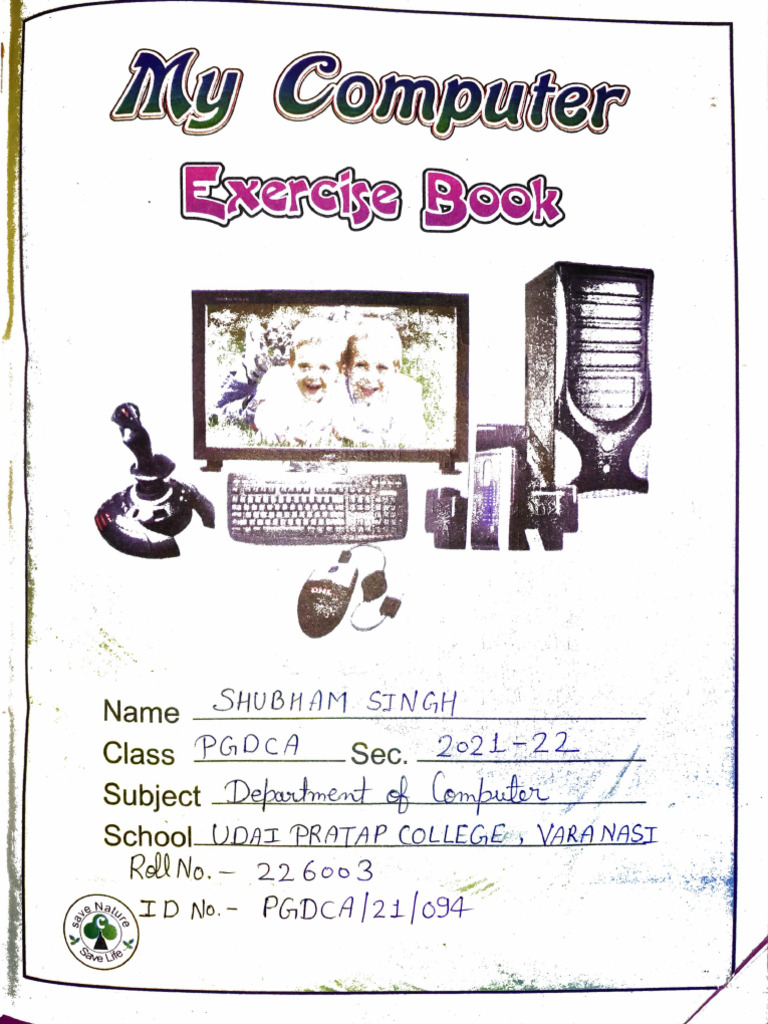 My Computer
Exercise Book
Name SHUBHAM SINGH
Class PGDCA Sec. 2021-22
Subject Department of Computer
School UDAI PRATAP COLLEGE, VARANASI
Roll No. - 226003
ID No. - PGDCA/21/094
Save Nature
Save Life